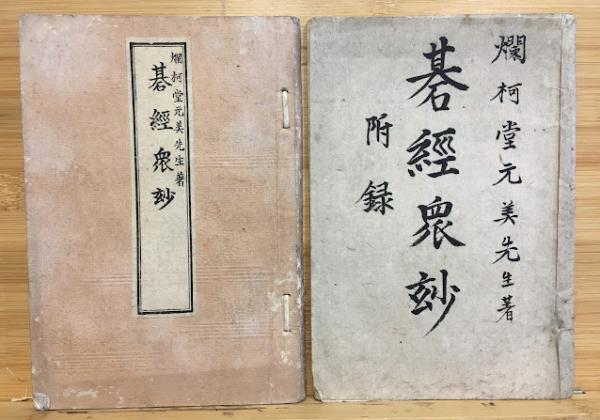 爛柯堂元美先生著
碁經衆玅
爛柯堂元美先生著
碁經衆玅
附録